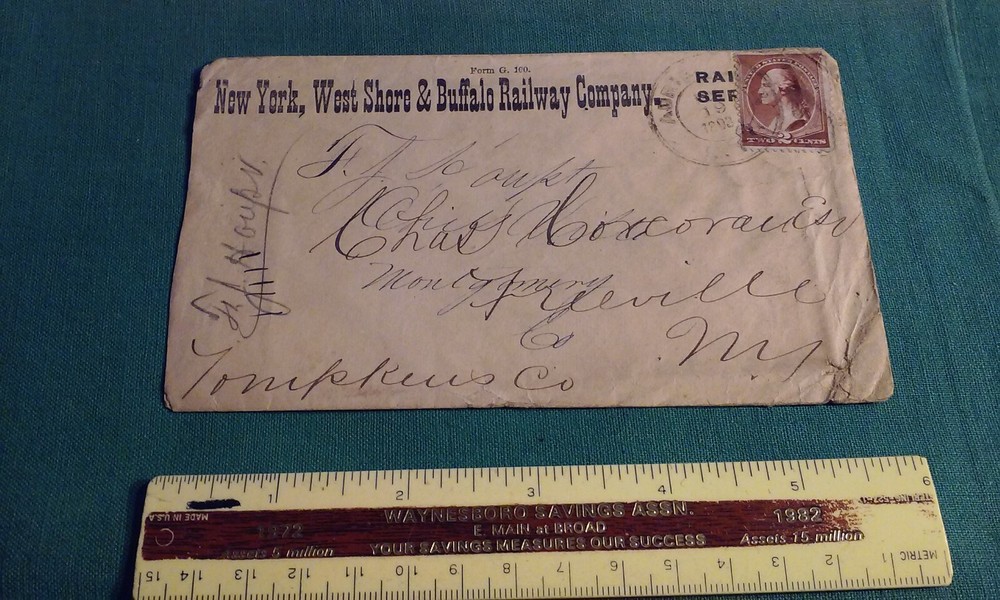 Form G. 100.
New York, West Shore & Buffalo Railway Company.
RAI
SER
TWO 2 CENTS
F. J. Houpt
Chas Corcoran Esq
Montgomery
Co
N.Y.
Tompkins Co
1 2 3 4 5 6
MADE IN U.S.A.
WAYNESBORO SAVINGS ASSN.
1972
E. MAIN at BROAD
1982
Assets 5 million
YOUR SAVINGS MEASURES OUR SUCCESS
Assets 15 million
METRIC
15 14 13 12 11 10 9 8 7 6 5 4 3 2 1